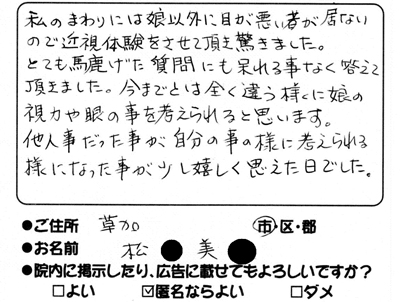 私のまわりには娘以外に目が悪い者が居ない
ので近視体験をさせて頂き驚きました。
とても馬鹿げた質問にも呆れる事なく答えて
頂きました。今までとは全く違う様に娘の
視力や眼の事を考えられると思います。
他人事だった事が、自分の事の様に考えられる
様になった事が少し嬉しく思えた日でした。
●ご住所 草加 市・区・郡
●お名前 松●美●
●院内に掲示したり、広告に載せてもよろしいですか?
□よい ☑匿名ならよい □ダメ